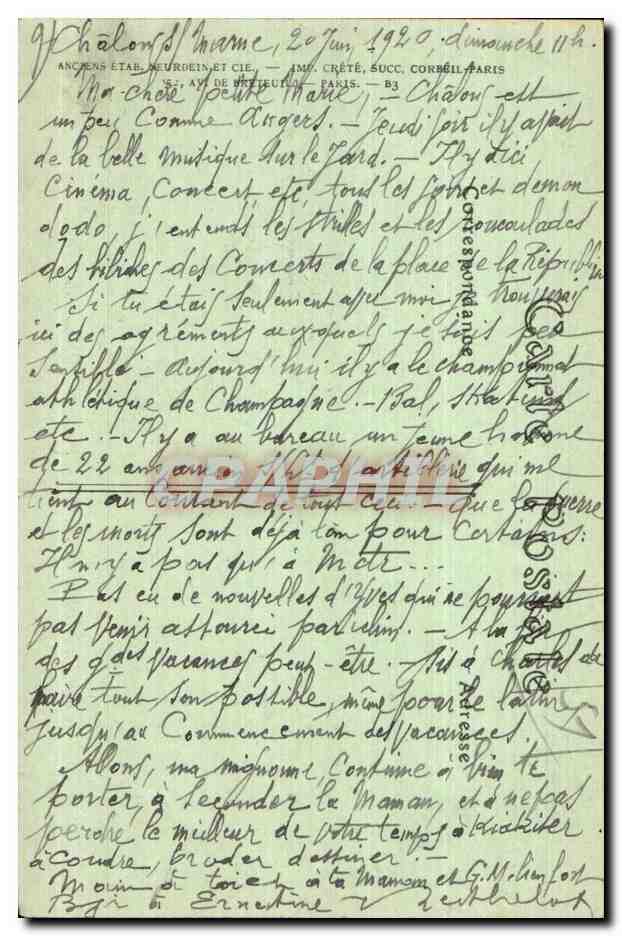 Châlons s/ Marne, 20 Juin 1920, dimanche 11h.
ANCIENS ÉTAB. NEURDEIN ET CIE. — IMP. CRÉTÉ, SUCC. CORBEIL-PARIS
AV. DE BRETEUIL — PARIS. — B3
Ma chère petite Marie, — Châlons est
un peu comme Angers. — Jeudi soir il y avait
de la belle musique sur le Jard. — Il y a ici
Cinéma, Concert, etc, tous les soirs et de mon
dodo, j'entends les trilles et les roucoulades
des Concerts de la place de la République
Si tu étais seulement avec moi je trouverais
ici des agréments auxquels je suis peu
sensible — aujourd'hui il y a le championnat
athlétique de Champagne. — Bal, Skating
etc. — Il y a au bureau un jeune homme
de 22 ans, d'artillerie qui me
tient au courant de tout ceci — Que la guerre
et les morts sont déjà loin pour certains:
Il n'y a pas qu'à
Pas eu de nouvelles d'Yves qui ne pourrait
pas venir
des gdes vacances peut-être. — Dis à Charles de
faire tout son possible, même pour le latin
jusqu'au Commencement des vacances.
Allons, ma mignonne, continue à bien te
porter, à seconder la Maman, et à ne pas
perdre le meilleur de votre temps à
à coudre, broder, dessiner. —
à toi et à ta Maman et G. M.
à Ernestine
Carte Postale
Correspondance
Adresse
CPAPHIL